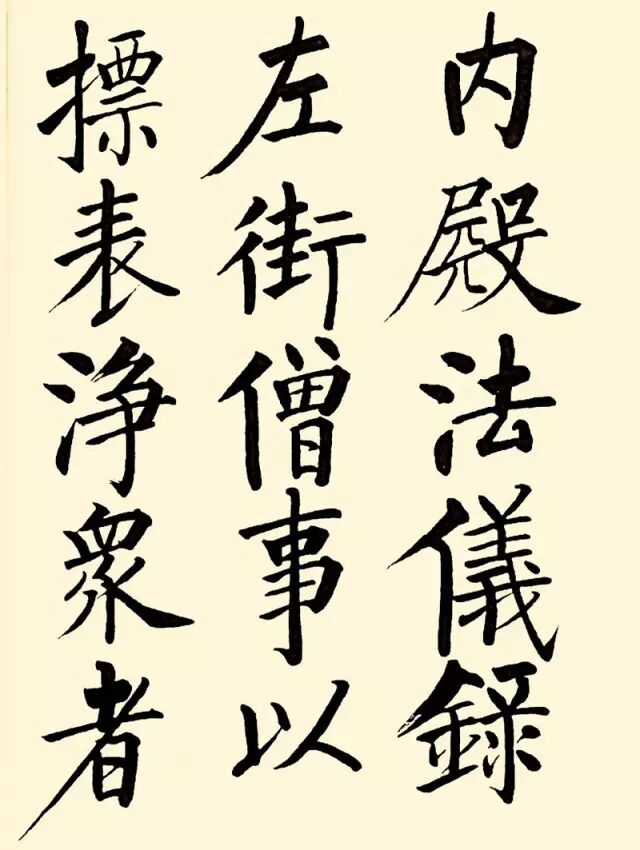 內殿法儀錄
左街僧事以
摽表淨衆者